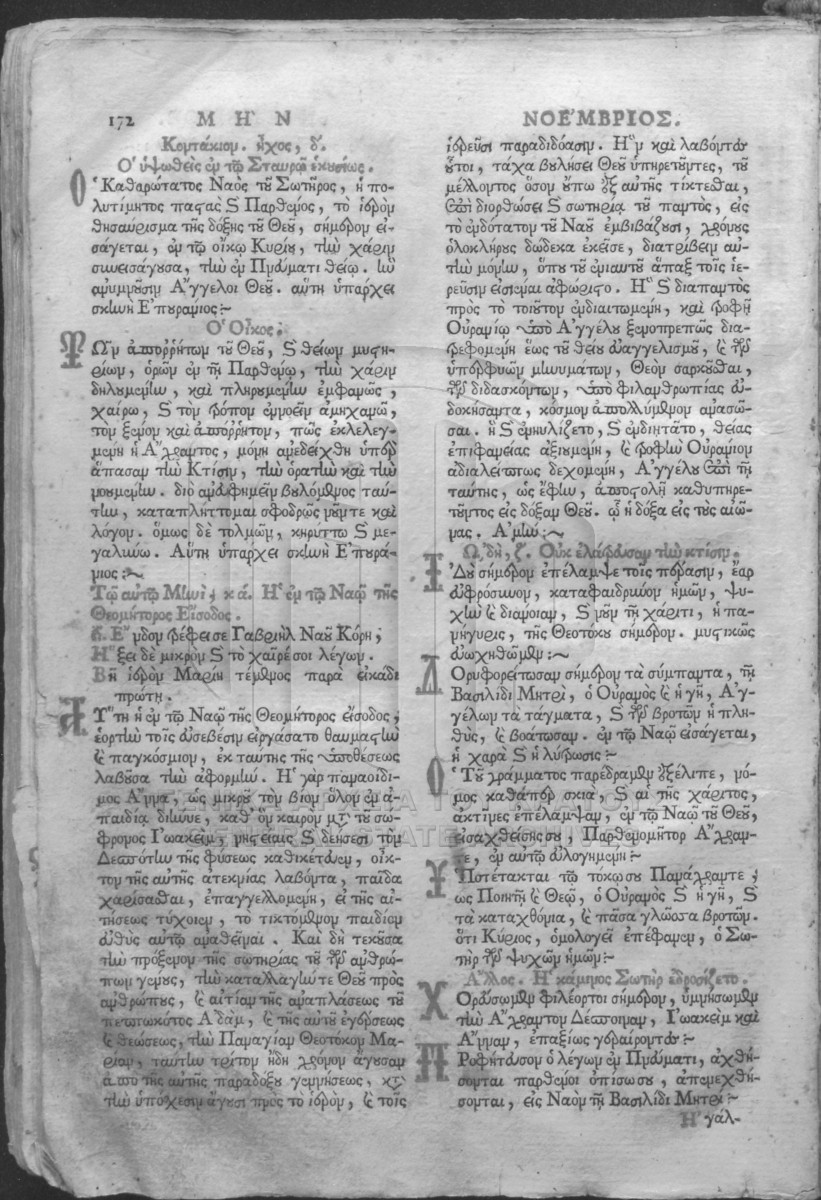 172 ΜΗ῍Ν ΝΟΕ´ΜΒΡΙΟΣ.
Κοντάκιον. ἦχος, δ΄.
Ο῾ ὑψωθεὶς ἐν τῷ Σταυρῷ ἑκουσίως.
Ο῾ Καθαρώτατος Ναὸς τοῦ Σωτῆρος, ἡ πο-
λυτίμητος παστὰς καὶ Παρθένος, τὸ ἱερὸν
θησαύρισμα τῆς δόξης τοῦ Θεοῦ, σήμερον εἰ-
σάγεται, ἐν τῷ οἴκῳ Κυρίου, τὴν χάριν
συνεισάγουσα, τὴν ἐν Πνεύματι θείῳ. ἣν
ἀνυμνοῦσιν Α῎γγελοι Θεοῦ. αὕτη ὑπάρχει
σκηνὴ Ε᾿πουράνιος:~
Ο῾ Οἶκος:
Τῶν ἀπορρήτων τοῦ Θεοῦ, καὶ θείων μυστη-
ρίων, ὁρῶν ἐν τῇ Παρθένῳ, τὴν χάριν
δηλουμένην, καὶ πληρουμένην ἐμφανῶς,
χαίρω, καὶ τὸν τρόπον ἐννοεῖν ἀμηχανῶ,
τὸν ξένον καὶ ἀπόρρητον, πῶς ἐκλελεγ-
μένη ἡ Α῎χραντος, μόνη ἀνεδείχθη ὑπὲρ
ἅπασαν τὴν Κτίσιν, τὴν ὁρατὴν καὶ τὴν
νοουμένην. διὸ ἀνευφημεῖν βουλόμενος ταύ-
την, καταπλήττομαι σφοδρῶς νοῦν τε καὶ
λόγον. ὅμως δὲ τολμῶν, κηρύττω καὶ με-
γαλύνω. Αὕτη ὑπάρχει σκηνὴ Ε᾿πουρά-
νιος:~
Τῷ αὐτῷ Μηνὶ, κά. Η῾ ἐν τῷ Ναῷ τῆς
Θεομήτορος Εἴσοδος.
Ε῎νδον τρέφει σε Γαβριὴλ Ναοῦ Κόρη,
Η῞ξει δὲ μικρὸν καὶ τὸ χαῖρέ σοι λέγων.
Βῆ ἱερὸν Μαρίη τέμενος παρὰ εἰκάδι
πρώτη.
Αὕτη ἡ ἐν τῷ Ναῷ τῆς Θεομήτορος εἴσοδος,
ἑορτὴν τοῖς εὐσεβέσιν εἰργάσατο θαυμαστὴν
καὶ παγκόσμιον, ἐκ ταύτης τῆς ὑποθέσεως
λαβοῦσα τὴν ἀφορμήν. Η῾ γὰρ παναοίδι-
μος Α῎ννα, ὡς μικροῦ τὸν βίον ὅλον ἐν ἀ-
παιδίᾳ διήνυε, καθ᾿ ὃν καιρὸν μετὰ τοῦ σώ-
φρονος Ι᾿ωακεὶμ, νηστείαις καὶ δεήσεσι τὸν
Δεσπότην τῆς φύσεως καθικέτευεν, οἶκ-
τον τῆς αὐτῆς ἀτεκνίας λαβόντα, παῖδα
χαρίσασθαι, ἐπαγγελλομένη, εἰ τῆς αἰ-
τήσεως τύχοιεν, τὸ τικτόμενον παιδίον
εὐθὺς αὐτῷ ἀναθεῖναι. Καὶ δὴ τεκοῦσα
τὴν πρόξενον τῆς σωτηρίας τοῦ τῶν ἀνθρώ-
πων γένους, τὴν καταλλαγήν τε Θεοῦ πρὸς
ἀνθρώπους, καὶ αἰτίαν τῆς ἀναπλάσεως τοῦ
πεπτωκότος Α᾿δὰμ, καὶ τῆς αὐτοῦ ἐγέρσεως
καὶ θεώσεως, τὴν Παναγίαν Θεοτόκον Μα-
ρίαν, ταύτην τρίτον ἤδη χρόνον ἄγουσαν
ἀπὸ τῆς αὐτῆς παραδόξου γεννήσεως, κατὰ
τὴν ὑπόσχεσιν ἄγουσι πρὸς τὸ ἱερὸν, καὶ τοῖς
ἱερεῦσι παραδιδόασιν. Η῝ν καὶ λαβόντες
οὗτοι, τάχα βουλήσει Θεοῦ ὑπηρετοῦντες, τοῦ
μέλλοντος ὅσον οὔπω ἐξ αὐτῆς τίκτεσθαι,
ἐπὶ διορθώσει καὶ σωτηρίᾳ τοῦ παντὸς, εἰς
τὸ ἐνδότατον τοῦ Ναοῦ ἐμβιβάζουσι, χρόνους
ὁλοκλήρους δώδεκα ἐκεῖσε, διατρίβειν αὐ-
τὴν μόνην, ὅπου τοῦ ἐνιαυτοῦ ἅπαξ τοῖς ἱε-
ρεῦσιν εἰσιέναι ἀφώριστο. Η῝ καὶ διαπαντὸς
πρὸς τὸ τοιοῦτον ἐνδιαιτωμένη, καὶ τροφῇ
Οὐρανίῳ ὑπὸ Α᾿γγέλου ξενοπρεπῶς δια-
τρεφομένη ἕως τοῦ θείου εὐαγγελισμοῦ, καὶ τῶν
ὑπερφυῶν μηνυμάτων, Θεὸν σαρκοῦσθαι,
τῶν διδασκόντων, ὑπὸ φιλανθρωπίας εὐ-
δοκήσαντα, κόσμον ἀπολλύμενον ἀνασῶ-
σαι. ἢ καὶ ἐνηυλίζετο, καὶ ἐνδιῃτᾶτο, θείας
ἐπιφανείας ἀξιουμένη, καὶ τροφὴν Οὐράνιον
ἀδιαλείπτως δεχομένη, Α᾿γγέλου ἐπὶ τῇ
ταύτης, ὡς ἔφην, ἀποστολῇ καθυπηρε-
τοῦντος εἰς δόξαν Θεοῦ. ᾧ ἡ δόξα εἰς τοὺς αἰῶ-
νας. Α᾿μήν:~
Ω᾿δὴ, ζ. Οὐκ ἐλάτρευσαν τὴν κτίσιν.
Ι᾿δοὺ σήμερον ἐπέλαμψε τοῖς πέρασιν, ἔαρ
εὐφρόσυνον, καταφαιδρῦνον ἡμῶν, ψυ-
χὴν καὶ διάνοιαν, καὶ νοῦν τῇ χάριτι, ἡ πα-
νήγυρις, τῆς Θεοτόκου σήμερον. μυστικῶς
εὐωχηθῶμεν:~
Δορυφορείτωσαν σήμερον τὰ σύμπαντα, τῇ
Βασιλίδι Μητρὶ, ὁ Οὐρανὸς καὶ ἡ γῆ, Α᾿γ-
γέλων τὰ τάγματα, καὶ τῶν βροτῶν ἡ πλη-
θὺς, καὶ βοάτωσαν. ἐν τῷ Ναῷ εἰσάγεται,
ἡ χαρὰ καὶ ἡ λύτρωσις:~
Ο῾ Τοῦ γράμματος παρέδραμεν ἐξέλιπε, νό-
μος καθάπερ σκιὰ, καὶ αἱ τῆς χάριτος,
ἀκτῖνες ἐπέλαμψαν, ἐν τῷ Ναῷ τοῦ Θεοῦ,
εἰσαχθείσης σου, Παρθενομῆτορ Α῎χραν-
τε, ἐν αὐτῷ εὐλογημένη:~
Υ῾ποτέτακται τῷ τόκῳ σου Πανάχραντε,
ὡς Ποιητῇ καὶ Θεῷ, ὁ Οὐρανὸς καὶ ἡ γῆ, καὶ
τὰ καταχθόνια, καὶ πᾶσα γλῶσσα βροτῶν.
ὅτι Κύριος, ὁμολογεῖ ἐπέφανεν, ὁ Σω-
τὴρ τῶν ψυχῶν ἡμῶν:~
Α῎λλος. Η῾ κάμινος Σωτὴρ ἐδροσίζετο.
Χορεύσωμεν φιλέορτοι σήμερον, ὑμνήσωμεν
τὴν Α῎χραντον Δέσποιναν, Ι᾿ωακεὶμ καὶ
Α῎νναν, ἐπαξίως γεραίροντες:~
Προφητεύσων ὁ λέγων ἐν Πνεύματι, ἀχθή-
σονται παρθένοι ὀπίσω σου, ἀπενεχθή-
σονται, εἰς Ναὸν τῇ Βασιλίδι Μητρί:~
Η῾ γάλ-